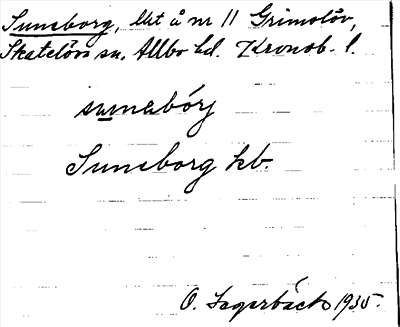 Suneborg, lht å nr 11 Grimslöv,
Skatelövs sn. Allbo hd. Kronob. l.
sunabórj
Suneborg kb.
O. Lagerbäck 1935.